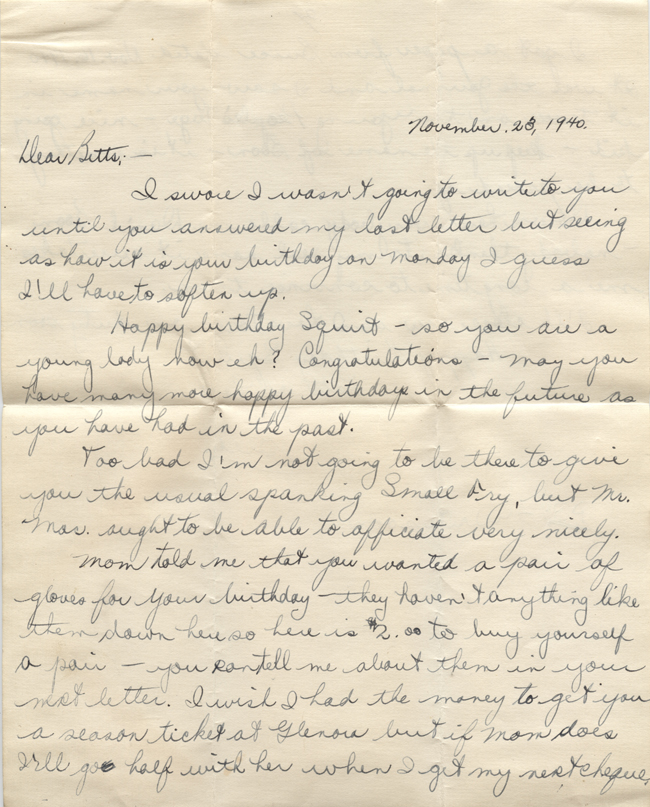 November. 23, 1940.
Dear Betts;—
I swore I wasn't going to write to you
until you answered my last letter but seeing
as how it is your birthday on Monday I guess
I'll have to soften up.
Happy birthday Squirt - so you are a
young lady now eh? Congratulations - may you
have many more happy birthdays in the future as
you have had in the past.
Too bad I'm not going to be there to give
you the usual spanking Small Fry, but Mr.
Mas. aught to be able to officiate very nicely.
Mom told me that you wanted a pair of
gloves for your birthday - they haven't anything like
them down here so here is $2.00 to buy yourself
a pair - you can tell me about them in your
next letter. I wish I had the money to get you
a season ticket at Glenora but if Mom does
I'll go half with her when I get my next cheque.